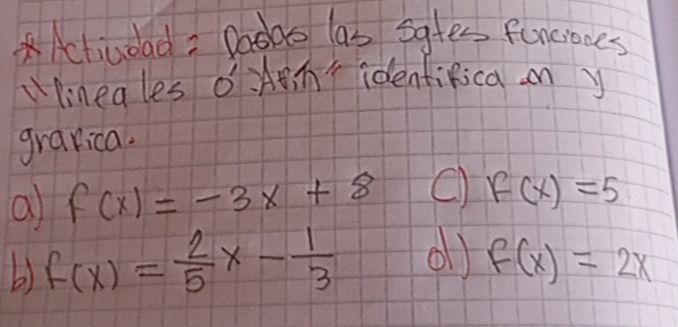 * Actividad: Dadas las sgtes funciones
"lineales ó Afín" identifica m y
grafica.
a) f(x) = -3x + 8 C) f(x) = 5
b) f(x) = 2/5 x - 1/3 d) f(x) = 2x